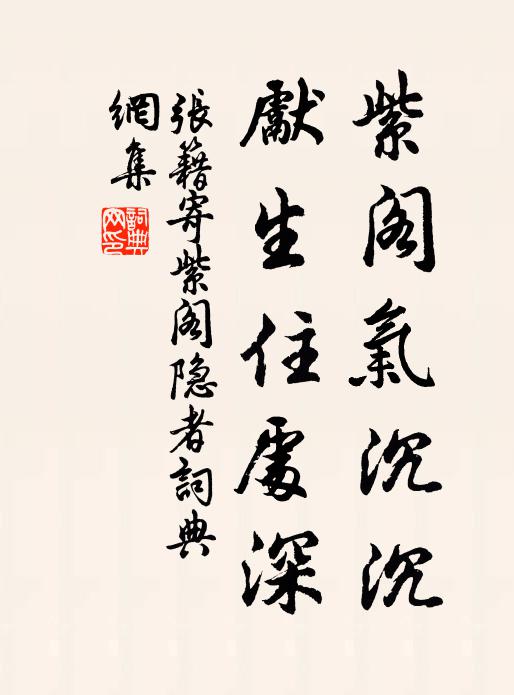 紫阁氣沉沉
獻生住處深
張籍寄紫阁隐者詞典
網集
詞典网印